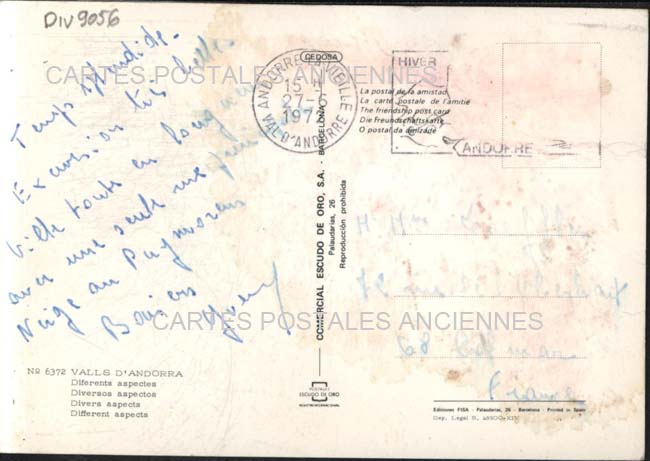 DIV 9056
Temps splendide.
Excursion très belle
Ville toute en longueur
avec une seule rue
Neige au Puymorens
Baisers
CARTES POSTALES ANCIENNES
CEDOSA
ANDORRE-LA-VIEILLE
15
27-
197
VAL D'ANDORRE
HIVER
ANDORRE
La postal de la amistad
La carte postale de l'amitié
The friendship post card
Die Freundschaftskarte
O postal da amizade
COMERCIAL ESCUDO DE ORO, S.A. - BARCELONA
Palaudarias, 26
Reproducción prohibida
68 Colmar
France
CARTES POSTALES ANCIENNES
Nº 6372 VALLS D'ANDORRA
Diferents aspectes
Diversos aspectos
Divers aspects
Different aspects
POSTALES
ESCUDO DE ORO
REGISTRO INTERNACIONAL
Ediciones FISA - Palaudarias, 26 - Barcelona - Printed in Spain
Dep. Legal B. 48500-XIV